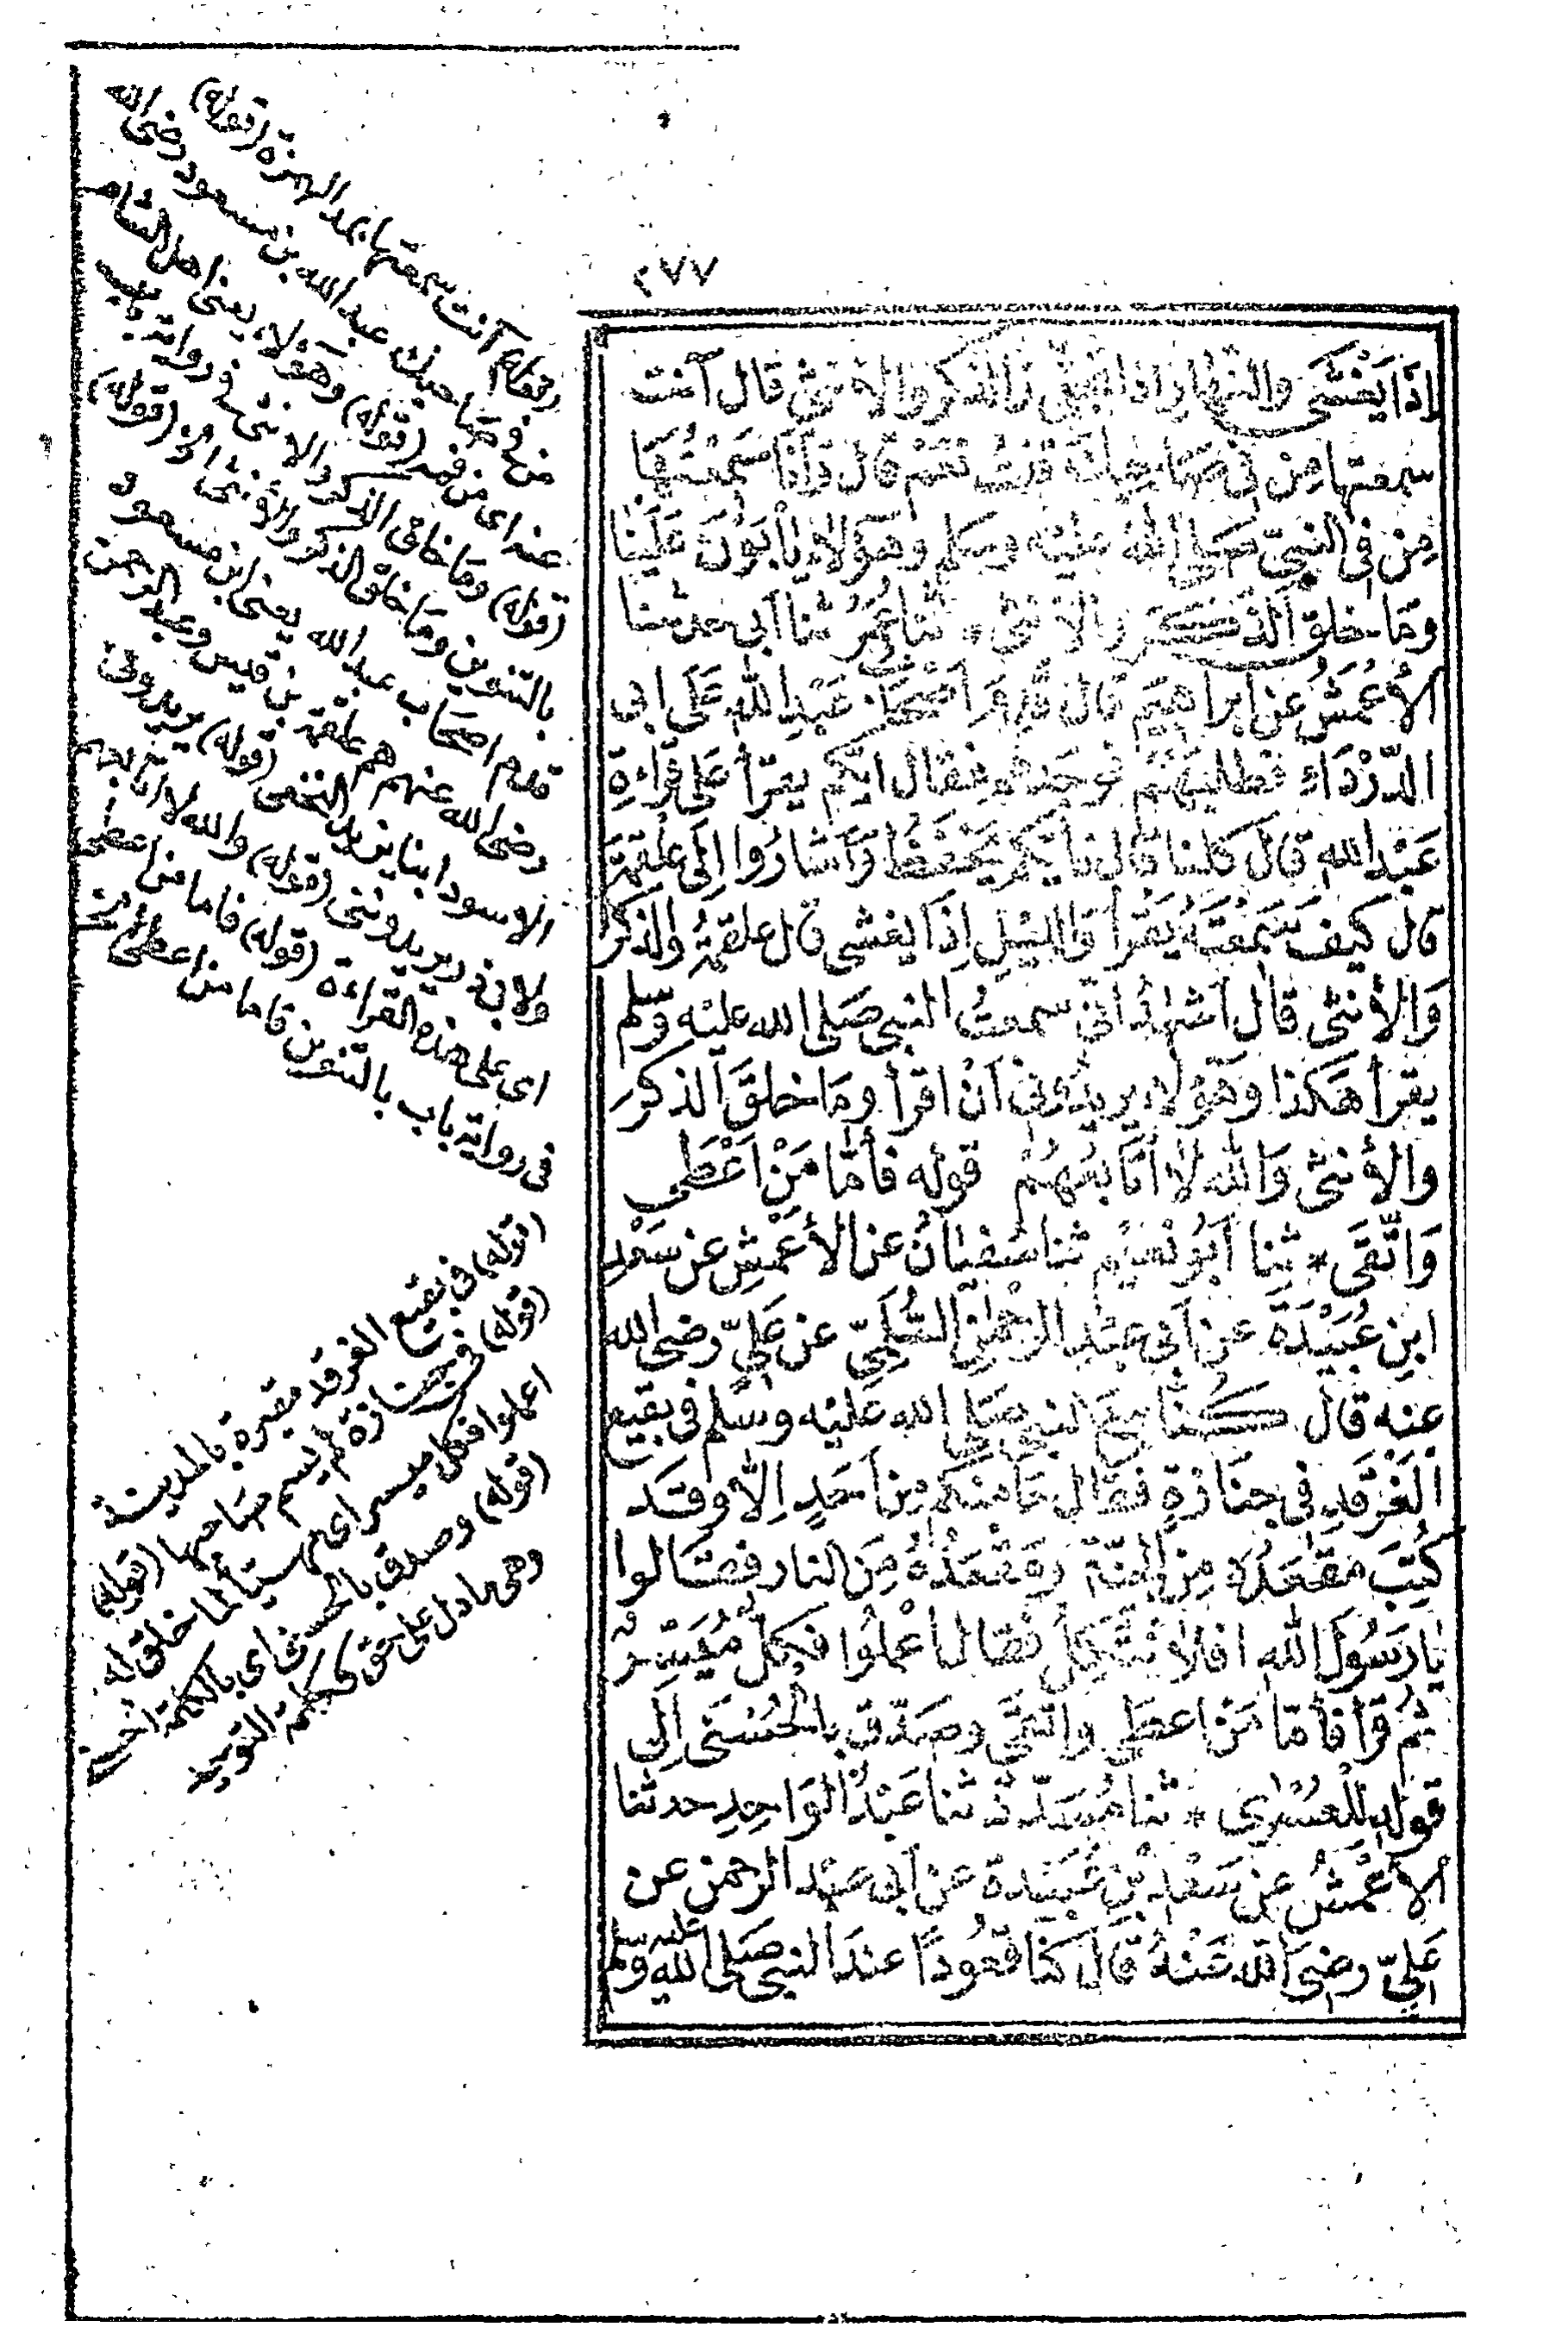 ٢٧٧
إِذَا يَغْشَى وَالنَّهَارِ إِذَا تَجَلَّى وَالذَّكَرِ وَالأُنْثَى قَالَ آنْتَ
سَمِعْتَهَا مِنْ فِي صَاحِبِكَ قُلْتُ نَعَمْ قَالَ وَأَنَا سَمِعْتُهَا
مِنْ فِي النَّبِيِّ صَلَّى اللهُ عَلَيْهِ وَسَلَّمَ وَهَؤُلاءِ يَأْبَوْنَ عَلَيْنَا
وَمَا خَلَقَ الذَّكَرَ وَالأُنْثَى * ثنا عُمَرُ ثنا أبي حدثنا
الأَعْمَشُ عَنْ إِبْرَاهِيمَ قَالَ قَدِمَ أَصْحَابُ عَبْدِ اللهِ عَلَى أبي
الدَّرْدَاءِ فَطَلَبَهُمْ فَوَجَدَهُمْ فَقَالَ أَيُّكُمْ يَقْرَأُ عَلَى قِرَاءَةِ
عَبْدِ اللهِ قَالَ كُلُّنَا قَالَ فَأَيُّكُمْ يَحْفَظُ وَأَشَارُوا إِلَى عَلْقَمَةَ
قَالَ كَيْفَ سَمِعْتَهُ يَقْرَأُ وَاللَّيْلِ إِذَا يَغْشَى قَالَ عَلْقَمَةُ وَالذَّكَرِ
وَالأُنْثَى قَالَ أَشْهَدُ أَنِّي سَمِعْتُ النَّبِيَّ صَلَّى الله عَلَيْهِ وَسَلَّم
يَقْرَأُ هَكَذَا وَهَؤُلاءِ يُرِيدُونِي أَنْ أَقْرَأَ وَمَا خَلَقَ الذَّكَرَ
وَالأُنْثَى وَاللهِ لا أُتَابِعُهُمْ قوله فَأَمَّا مَنْ أَعْطَى
وَاتَّقَى * ثنا أَبُو نُعَيْمٍ ثنا سُفْيَانُ عَنِ الأَعْمَشِ عَنْ سَعْدِ
ابْنِ عُبَيْدَةَ عَنْ أَبِي عَبْدِ الرَّحْمٰنِ السُّلَمِيِّ عَنْ عَلِيٍّ رَضِيَ الله
عنه قَالَ كُنَّا مَعَ النَّبِيِّ صَلَّى اللهُ عَلَيْهِ وَسَلَّم فِي بَقِيعِ
الْغَرْقَدِ فِي جَنَازَةٍ فَقَالَ مَا مِنْكُمْ مِنْ أَحَدٍ إِلَّا وَقَدْ
كُتِبَ مَقْعَدُهُ مِنَ الْجَنَّةِ وَمَقْعَدُهُ مِنَ النَّارِ فَقَالُوا
يَا رَسُولَ اللهِ أَفَلا نَتَّكِلُ فَقَالَ اعْمَلُوا فَكُلٌّ مُيَسَّرٌ
ثُمَّ قَرَأَ فَأَمَّا مَنْ أَعْطَى وَاتَّقَى وَصَدَّقَ بِالْحُسْنَى إِلَى
قَوْلِهِ لِلْعُسْرَى * ثنا مُسَدَّدٌ ثنا عَبْدُ الْوَاحِدِ حدثنا
الأَعْمَشُ عَنْ سَعْدِ بْنِ عُبَيْدَةَ عَنْ أَبِي عَبْدِ الرَّحْمٰنِ عَنْ
عَلِيٍّ رَضِيَ اللهُ عَنْهُ قَالَ كُنَّا قُعُودًا عِنْدَ النَّبِيِّ صَلَّى اللهُ عَلَيْهِ وَسَلَّم
(قوله)
فقال آنت سمعتها بمد الهمزة (قوله)
من في صاحبك عبد الله بن مسعود رضى الله
عنه اى من فمه (قوله) وهؤلاء يعنى اهل الشام
(قوله) وما خلق الذكر والانثى في رواية باب
بالتنوين وما خلق الذكر والانثى (قوله)
قدم اصحاب عبد الله يعنى ابن مسعود
رضى الله عنهم هم علقمة بن قيس وعبد الرحمن
الاسود ابنا يزيد النخعى (قوله) يريدونى
ولابى ذر يريدوننى (قوله) والله لا اتابعهم
اى على هذه القراءة (قوله) فاما من اعطى
في رواية باب بالتنوين فاما من اعطى
(قوله) في بقيع الغرقد مقبرة بالمدينة
(قوله) في جنازة لم يسم صاحبها (قوله)
اعملوا فكل ميسر اى مهيأ لما خلق له
(قوله) وصدق بالحسنى اى بالكلمة الحسنى
وهى ما دل على حق ككلمة التوحيد